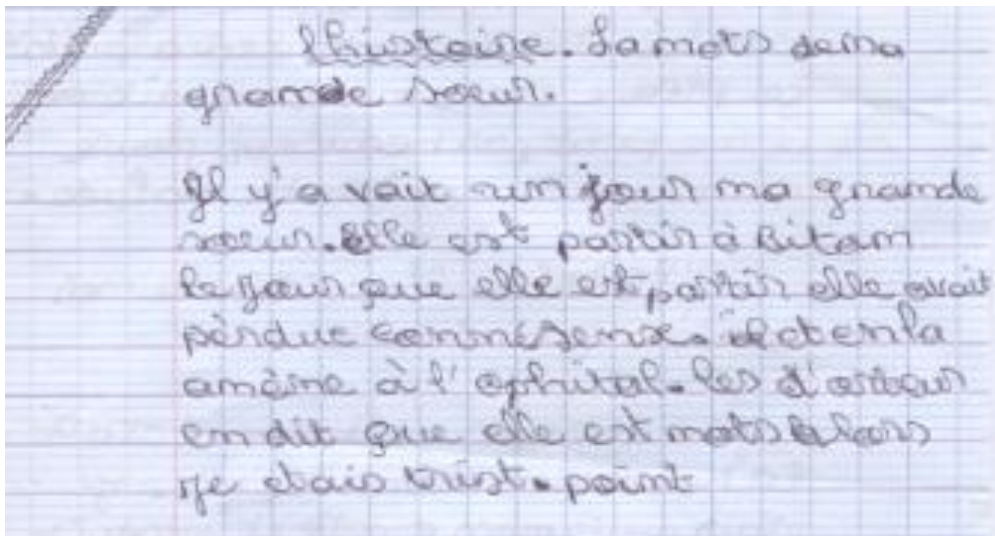 lhistoire. La mots dema
grande sœur.
Il y'a vait un jour ma grande
sœur. Elle est partir à Bitam
le jour que elle est partir elle avait
perdue connésense. et en la
amène à l'ophital. les d'octeur
en dit que elle est mots alors
je etais trist. point